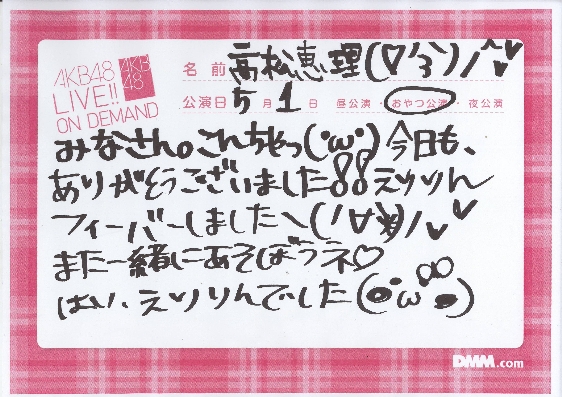 AKB48
LIVE!!
ON DEMAND
AKB
48
名前 高松恵理(▽'3`)ノ^♥♥
公演日 5月1日 昼公演・おやつ公演・夜公演
みなさん。こんちゃっ(・ω・)今日も、
ありがとうございました!!えりりん
フィーバーしました＼(ˊ∀ˋ)ﾉ♥
また一緒にあそぼうネ♡
はい、えりりんでした(・ω・)
DMM.com